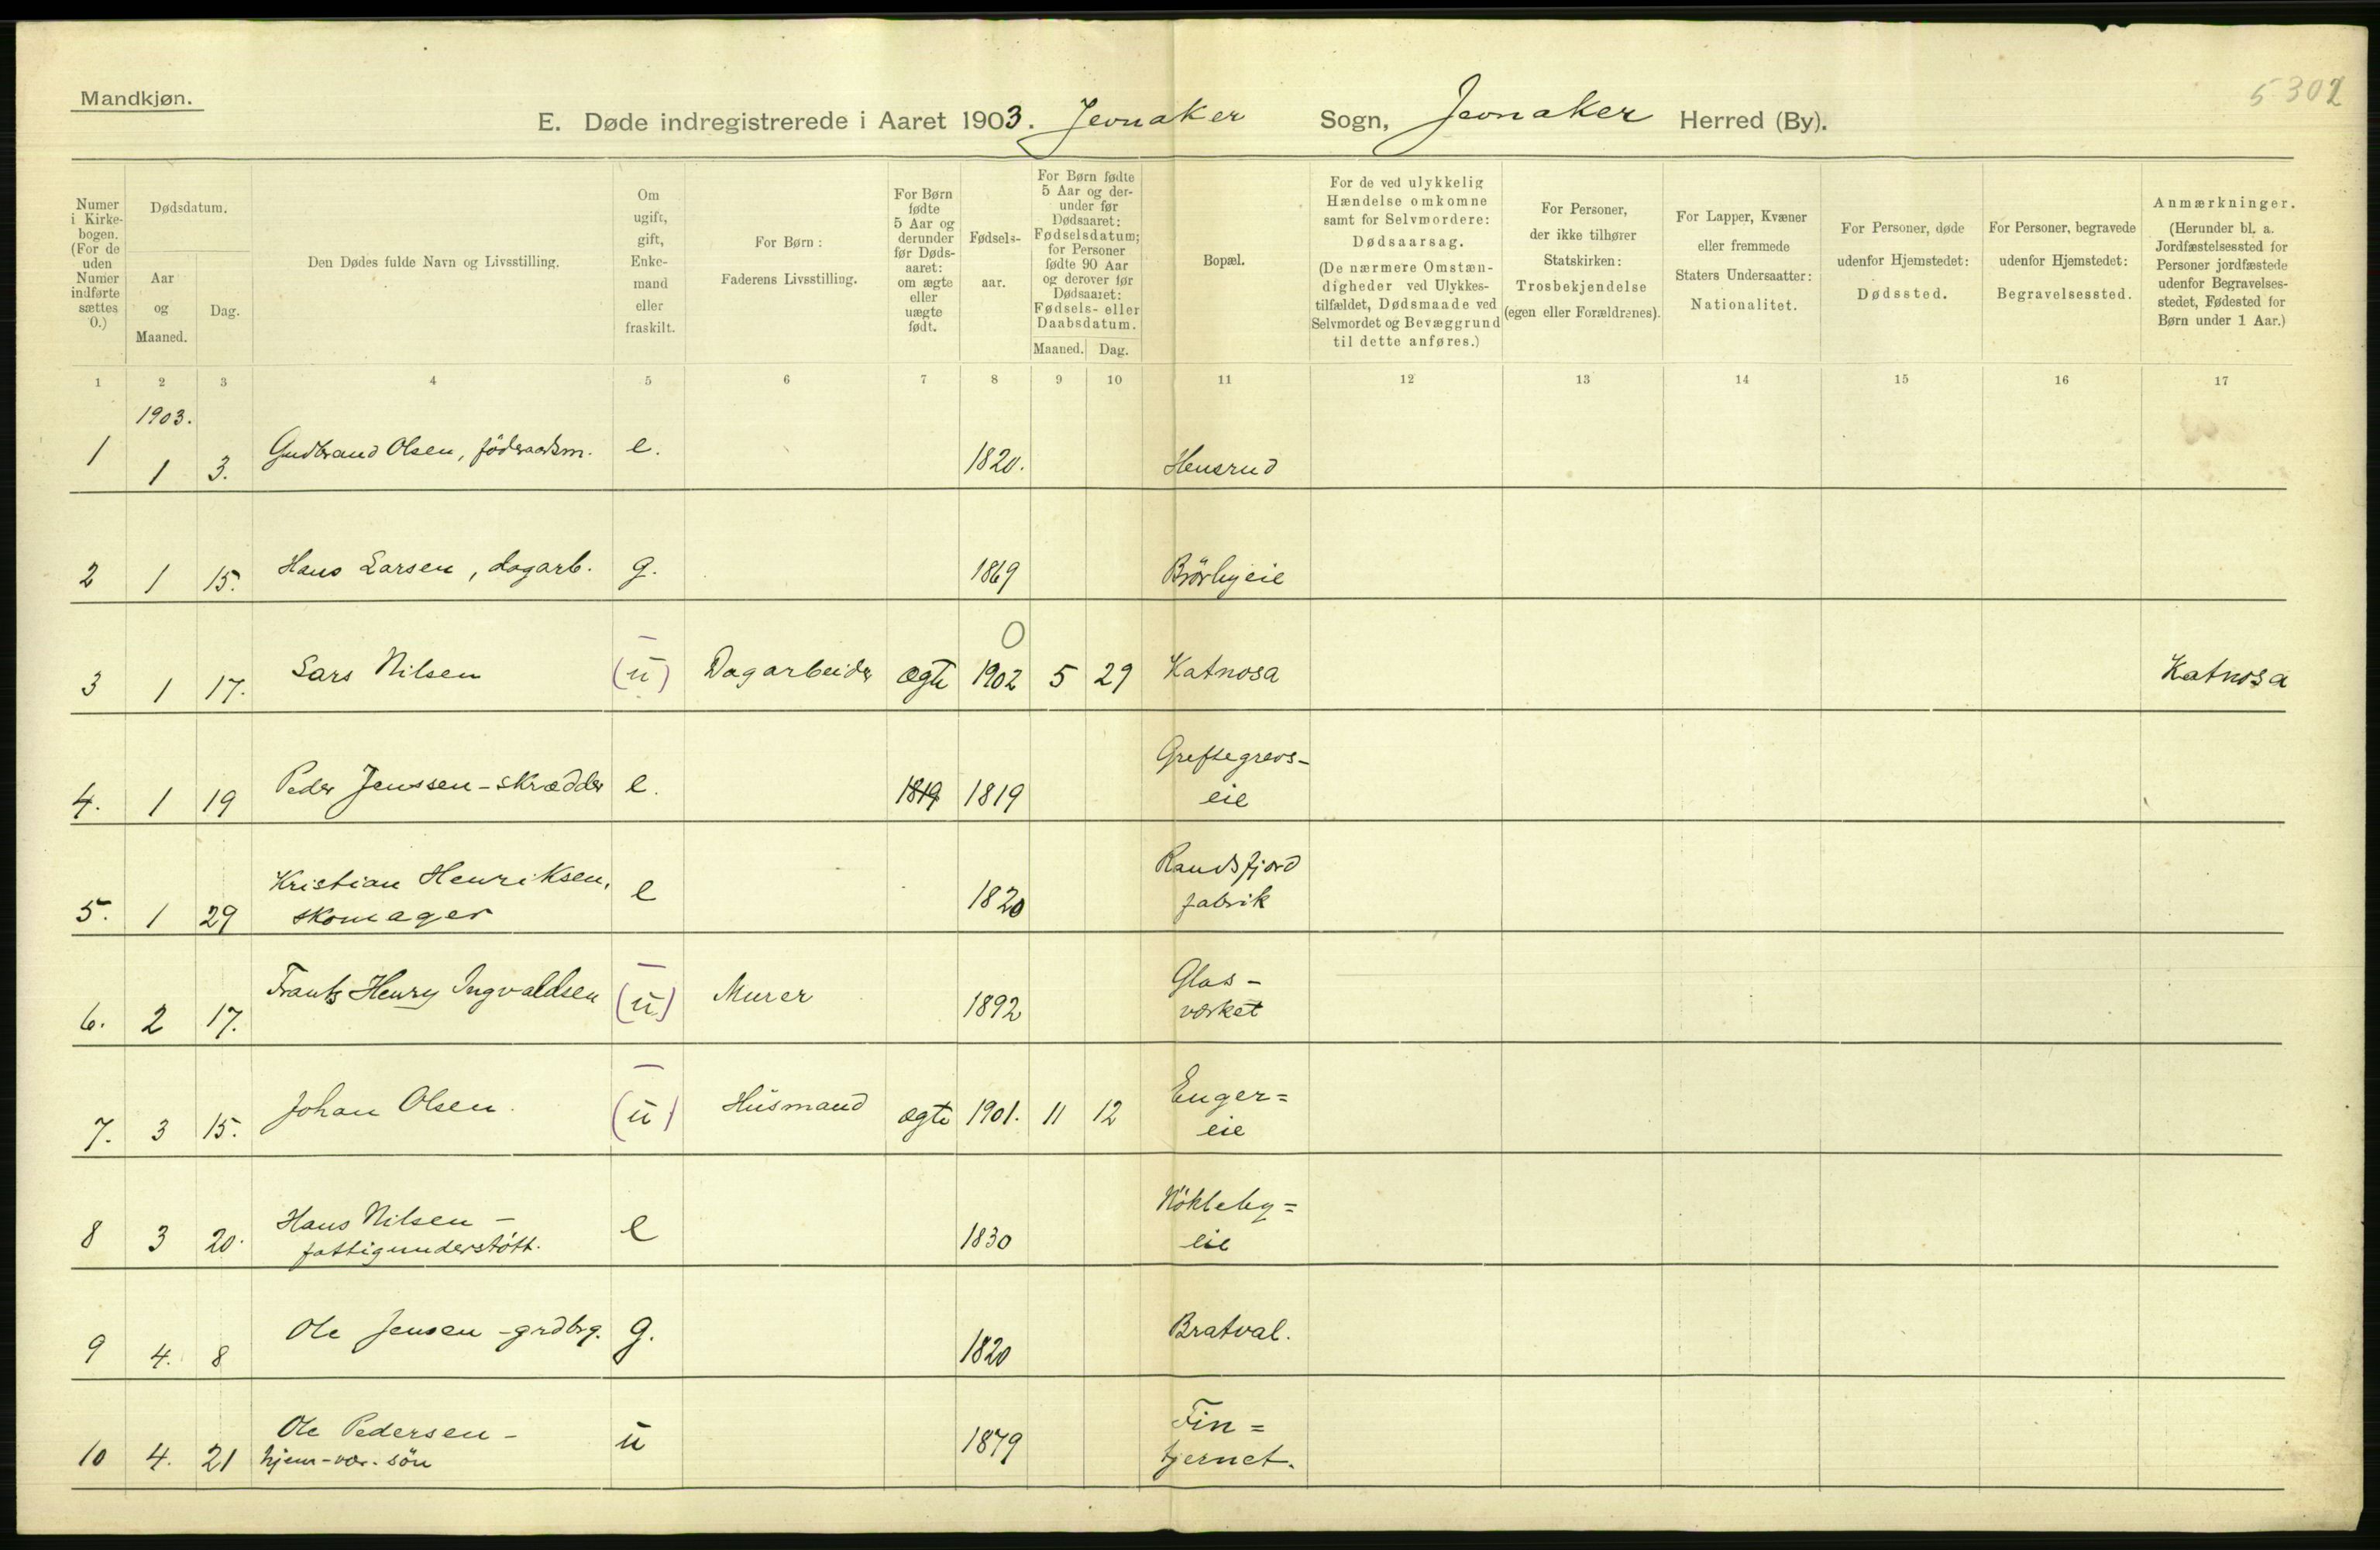 Mandkjøn.
5302
E. Døde indregistrerede i Aaret 1903. Jevnaker Sogn, Jevnaker Herred (By).
Numer i Kirke-bogen. (For de uden Numer indførte sættes 0.)
Dødsdatum.
Aar og Maaned.
Dag.
Den Dødes fulde Navn og Livsstilling.
Om ugift, gift, Enke-mand eller fraskilt.
For Børn: Faderens Livsstilling.
For Børn fødte 5 Aar og derunder før Døds-aaret: om ægte eller uægte født.
Fødsels-aar.
For Børn fødte 5 Aar og der-under før Dødsaaret: Fødselsdatum; for Personer fødte 90 Aar og derover før Dødsaaret: Fødsels- eller Daabsdatum.
Maaned. Dag.
Bopæl.
For de ved ulykkelig Hændelse omkomne samt for Selvmordere: Dødsaarsag. (De nærmere Omstæn-digheder ved Ulykkes-tilfældet, Dødsmaade ved Selvmordet og Bevæggrund til dette anføres.)
For Personer, der ikke tilhører Statskirken: Trosbekjendelse (egen eller Forældrenes).
For Lapper, Kvæner eller fremmede Staters Undersaatter: Nationalitet.
For Personer, døde udenfor Hjemstedet: Dødssted.
For Personer, begravede udenfor Hjemstedet: Begravelsessted.
Anmærkninger. (Herunder bl. a. Jordfæstelsessted for Personer jordfæstede udenfor Begravelses-stedet, Fødested for Børn under 1 Aar.)
1 2 3 4 5 6 7 8 9 10 11 12 13 14 15 16 17
1903.
1 1 3. Gudbrand Olsen, föderaadsm. e. 1820. Hensrud
2 1 15. Hans Larsen, dagarb. g. 1869 Brörbyeie
0
3 1 17. Lars Nilsen (u) Dagarbeider ægte 1902 5 29 Katnosa Katnosa
4. 1 19 Peder Jenssen - skrædder e. 1819 1819 Greftegrevs-
eie
5. 1 29 Kristian Henriksen, e 1820 Randsfjord
skomager fabrik
6. 2 17. Frants Henry Ingvaldsen (u) Murer 1892 Glas-
værket
7. 3 15. Johan Olsen. (u) Husmand ægte 1901. 11 12 Enger=
eie
8 3 20. Hans Nilsen - e 1830 Nökleby=
fattigunderstött. eie
9 4. 8 Ole Jensen - grdbrg. g. 1820 Bratval.
10 4. 21 Ole Pedersen - u 1879 Fin=
hjem-vær. sön tjernet.